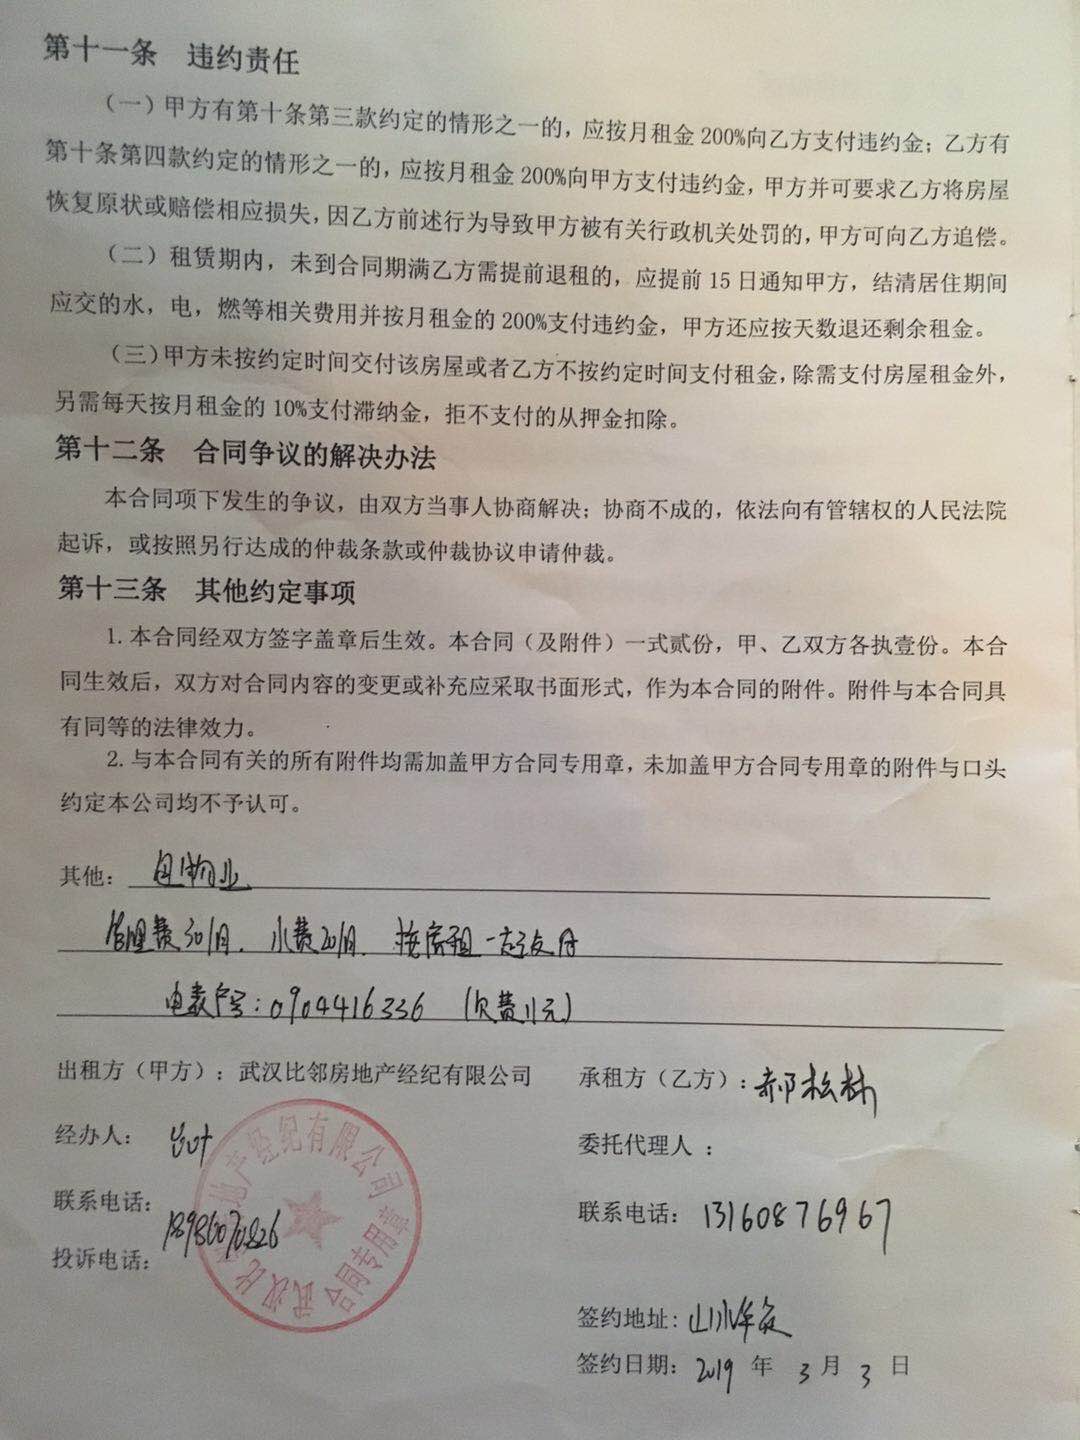 第十一条 违约责任
（一）甲方有第十条第三款约定的情形之一的，应按月租金200%向乙方支付违约金；乙方有
第十条第四款约定的情形之一的，应按月租金200%向甲方支付违约金，甲方并可要求乙方将房屋
恢复原状或赔偿相应损失，因乙方前述行为导致甲方被有关行政机关处罚的，甲方可向乙方追偿。
（二）租赁期内，未到合同期满乙方需提前退租的，应提前15日通知甲方，结清居住期间
应交的水，电，燃等相关费用并按月租金的200%支付违约金，甲方还应按天数退还剩余租金。
（三）甲方未按约定时间交付该房屋或者乙方不按约定时间支付租金，除需支付房屋租金外，
另需每天按月租金的10%支付滞纳金，拒不支付的从押金扣除。
第十二条 合同争议的解决办法
本合同项下发生的争议，由双方当事人协商解决；协商不成的，依法向有管辖权的人民法院
起诉，或按照另行达成的仲裁条款或仲裁协议申请仲裁。
第十三条 其他约定事项
1.本合同经双方签字盖章后生效。本合同（及附件）一式贰份，甲、乙双方各执壹份。本合
同生效后，双方对合同内容的变更或补充应采取书面形式，作为本合同的附件。附件与本合同具
有同等的法律效力。
2.与本合同有关的所有附件均需加盖甲方合同专用章，未加盖甲方合同专用章的附件与口头
约定本公司均不予认可。
其他：包物业
管理费30/月．水费20/月．按房租一起支付
电表户号：0904416336 （欠费11元）
出租方（甲方）：武汉比邻房地产经纪有限公司 承租方（乙方）：郝松林
经办人： 委托代理人：
联系电话：18986070826 联系电话：13160876967
投诉电话：
武汉比 地产经纪有限公司
合同专用章
签约地址：山水华庭
签约日期：2019 年 3 月 3 日